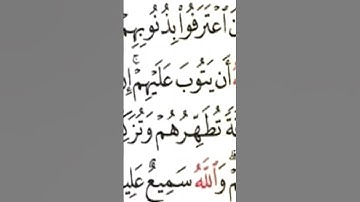 ٱعْتَرَفُوا۟ بِذُنُوبِهِمْ
أَن يَتُوبَ عَلَيْهِمْۚ
تُطَهِّرُهُمْ وَتُزَكِّ
وَٱللَّهُ سَمِيعٌ عَلِي